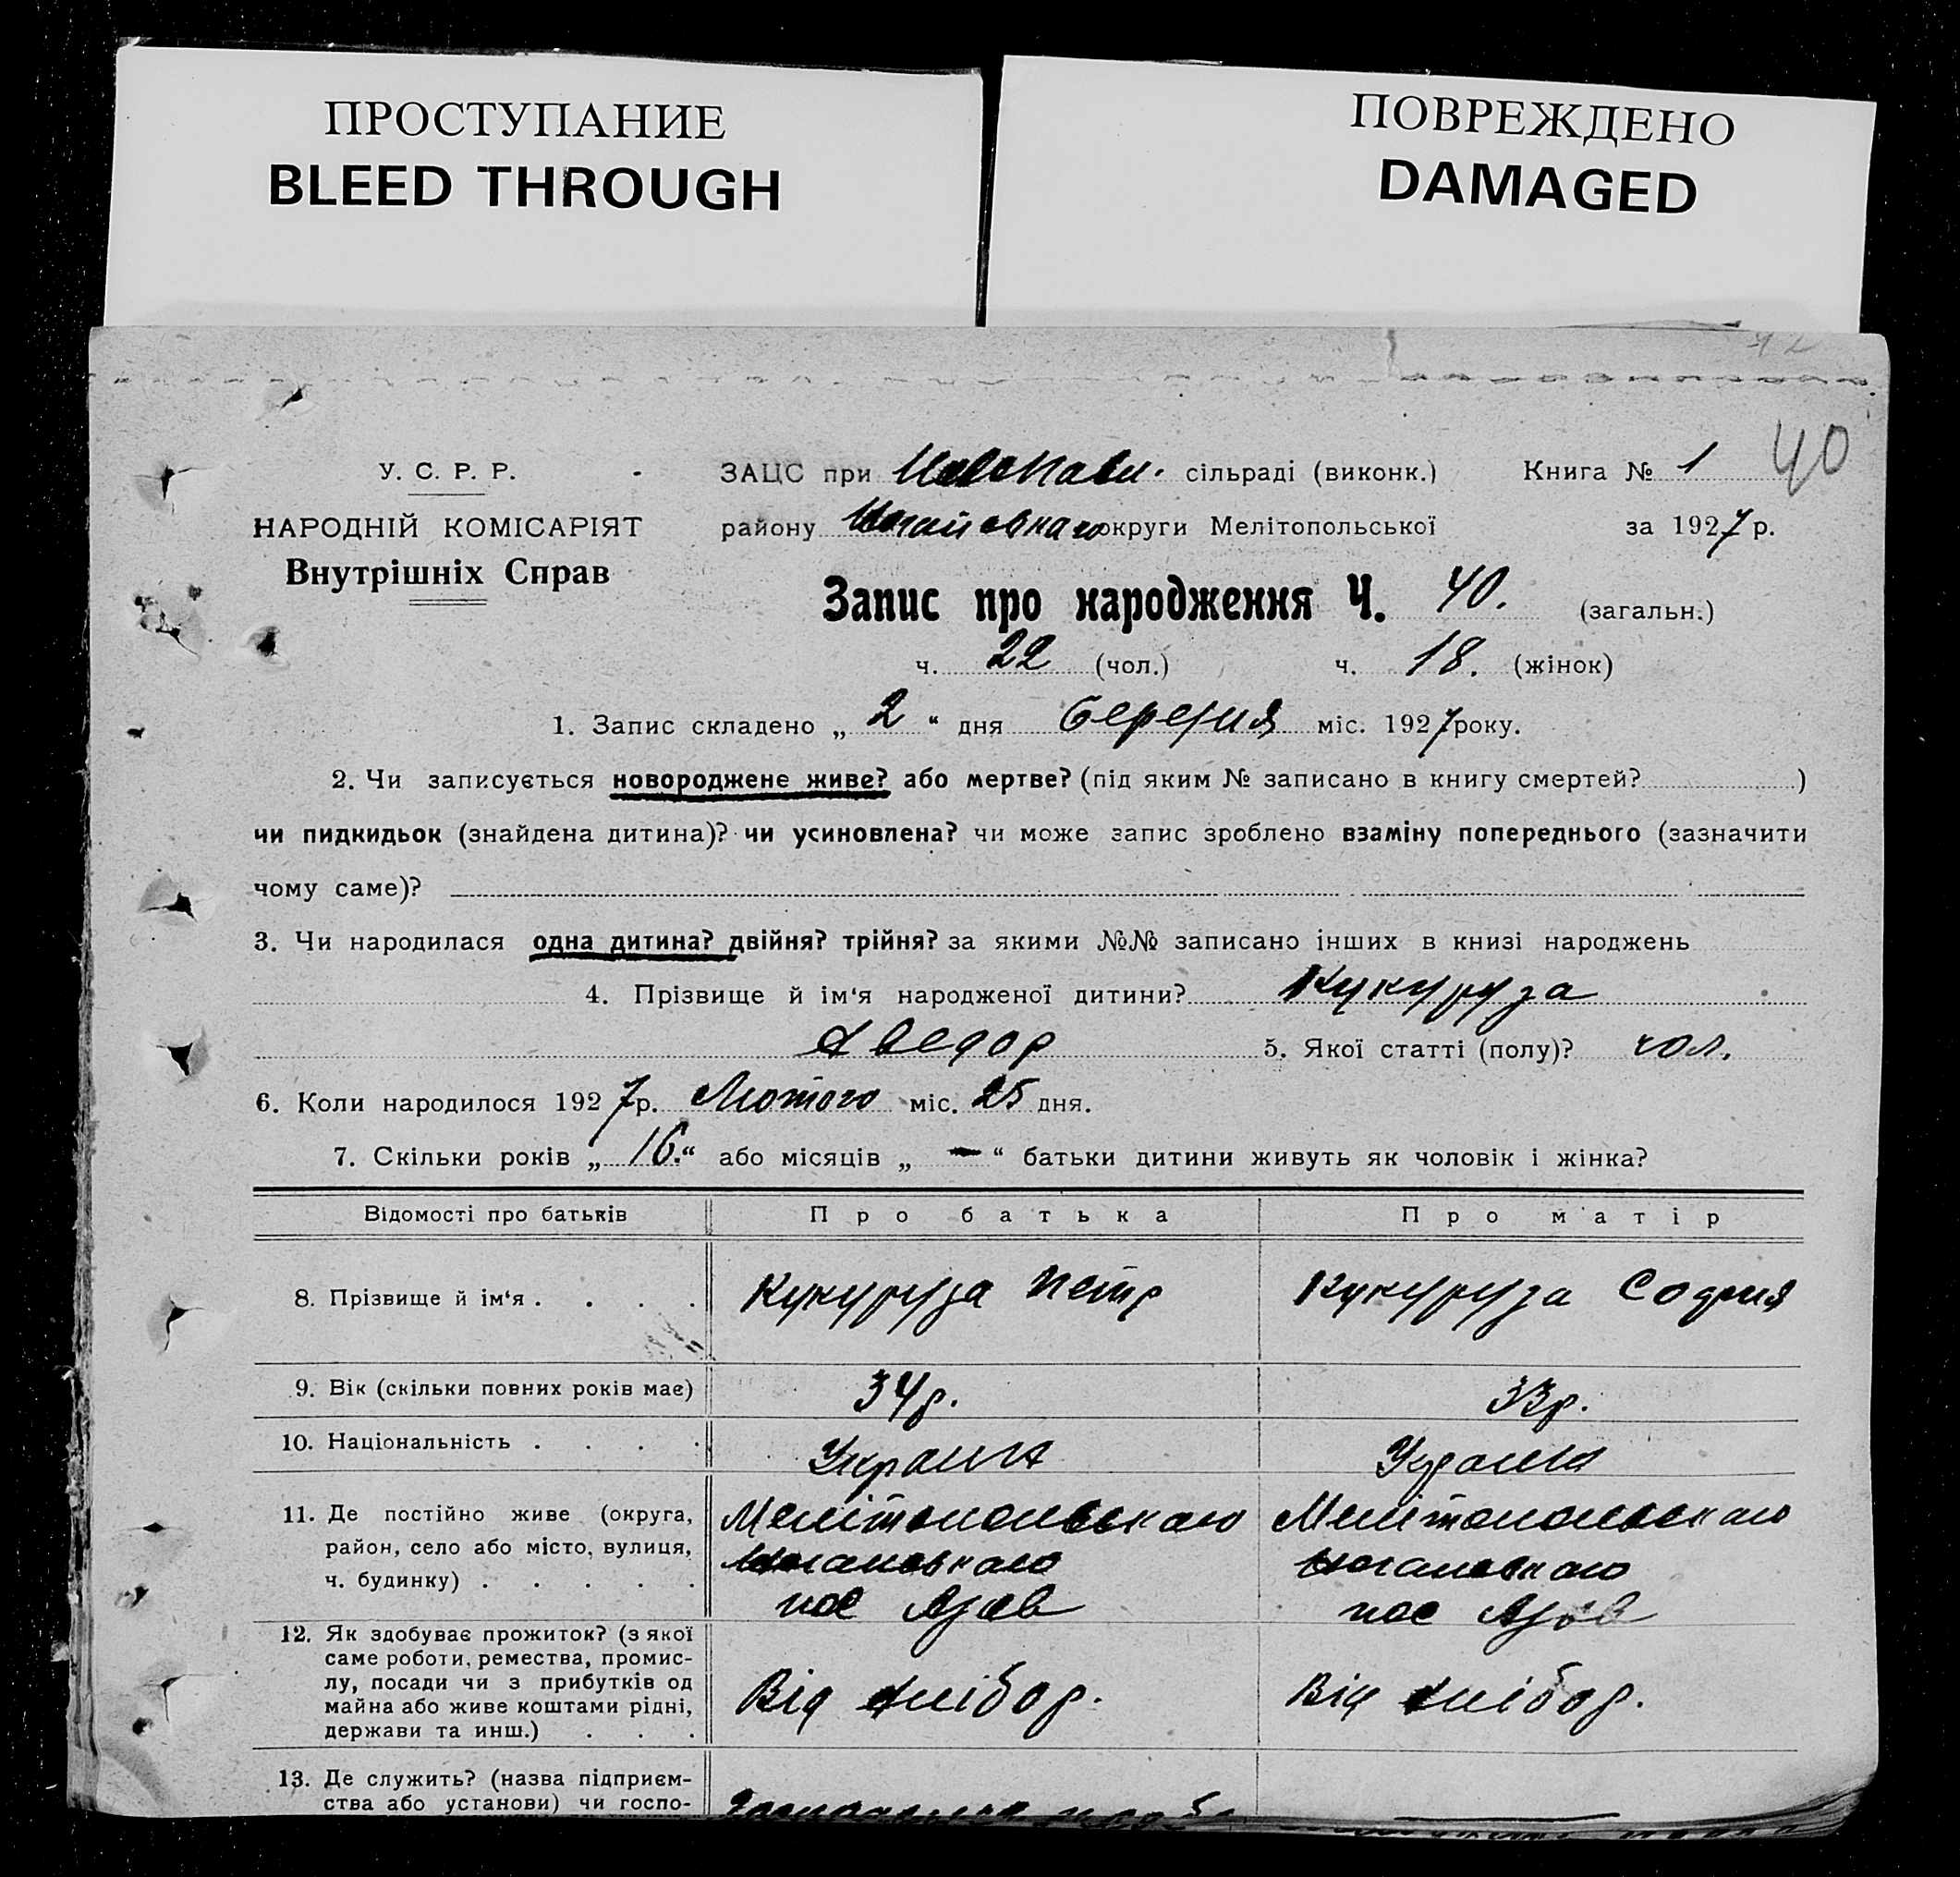 ПРОСТУПАНИЕ
BLEED THROUGH
ПОВРЕЖДЕНО
DAMAGED
40
У. С. Р. Р.
НАРОДНІЙ КОМІСАРІЯТ
Внутрішніх Справ
ЗАЦС при Новопавл. сільраді (виконк.) Книга № 1
району Ногайсвкаго округи Мелітопольської за 1927 р.
Запис про народження Ч. 40. (загальн.)
ч. 22 (чол.) ч. 18. (жінок)
1. Запис складено „ 2 “ дня березня міс. 1927 року.
2. Чи записується новороджене живе? або мертве? (під яким № записано в книгу смертей? )
чи пидкидьок (знайдена дитина)? чи усиновлена? чи може запис зроблено взаміну попереднього (зазначити
чому саме)?
3. Чи народилася одна дитина? двійня? трійня? за якими №№ записано інших в книзі народжень
4. Прізвище й ім‘я народженої дитини? Кукуруза
Хведор 5. Якої статті (полу)? чол.
6. Коли народилося 1927 р. Лютого міс. 25 дня.
7. Скільки років „ 16. “ або місяців „ — “ батьки дитини живуть як чоловік і жінка?
Відомості про батьків Про батька Про матір
8. Прізвище й ім‘я . . . . Кукуруза Петр Кукуруза София
9. Вік (скільки повних років має) 34 р. 33 р.
10. Національність . . . . Украин
11. Де постійно живе (округа, Мелітопольського Мелітопольського
район, село або місто, вулиця,
ч. будинку) . . . . .
пос Азов пос Азов
12. Як здобуває прожиток? (з якої
саме роботи, ремества, промис-
лу, посади чи з прибутків од
майна або живе коштами рідні,
держави та инш.) . . .
Від хлібор. Від хлібор.
13. Де служить? (назва підприєм-
ства або установи) чи госпо-